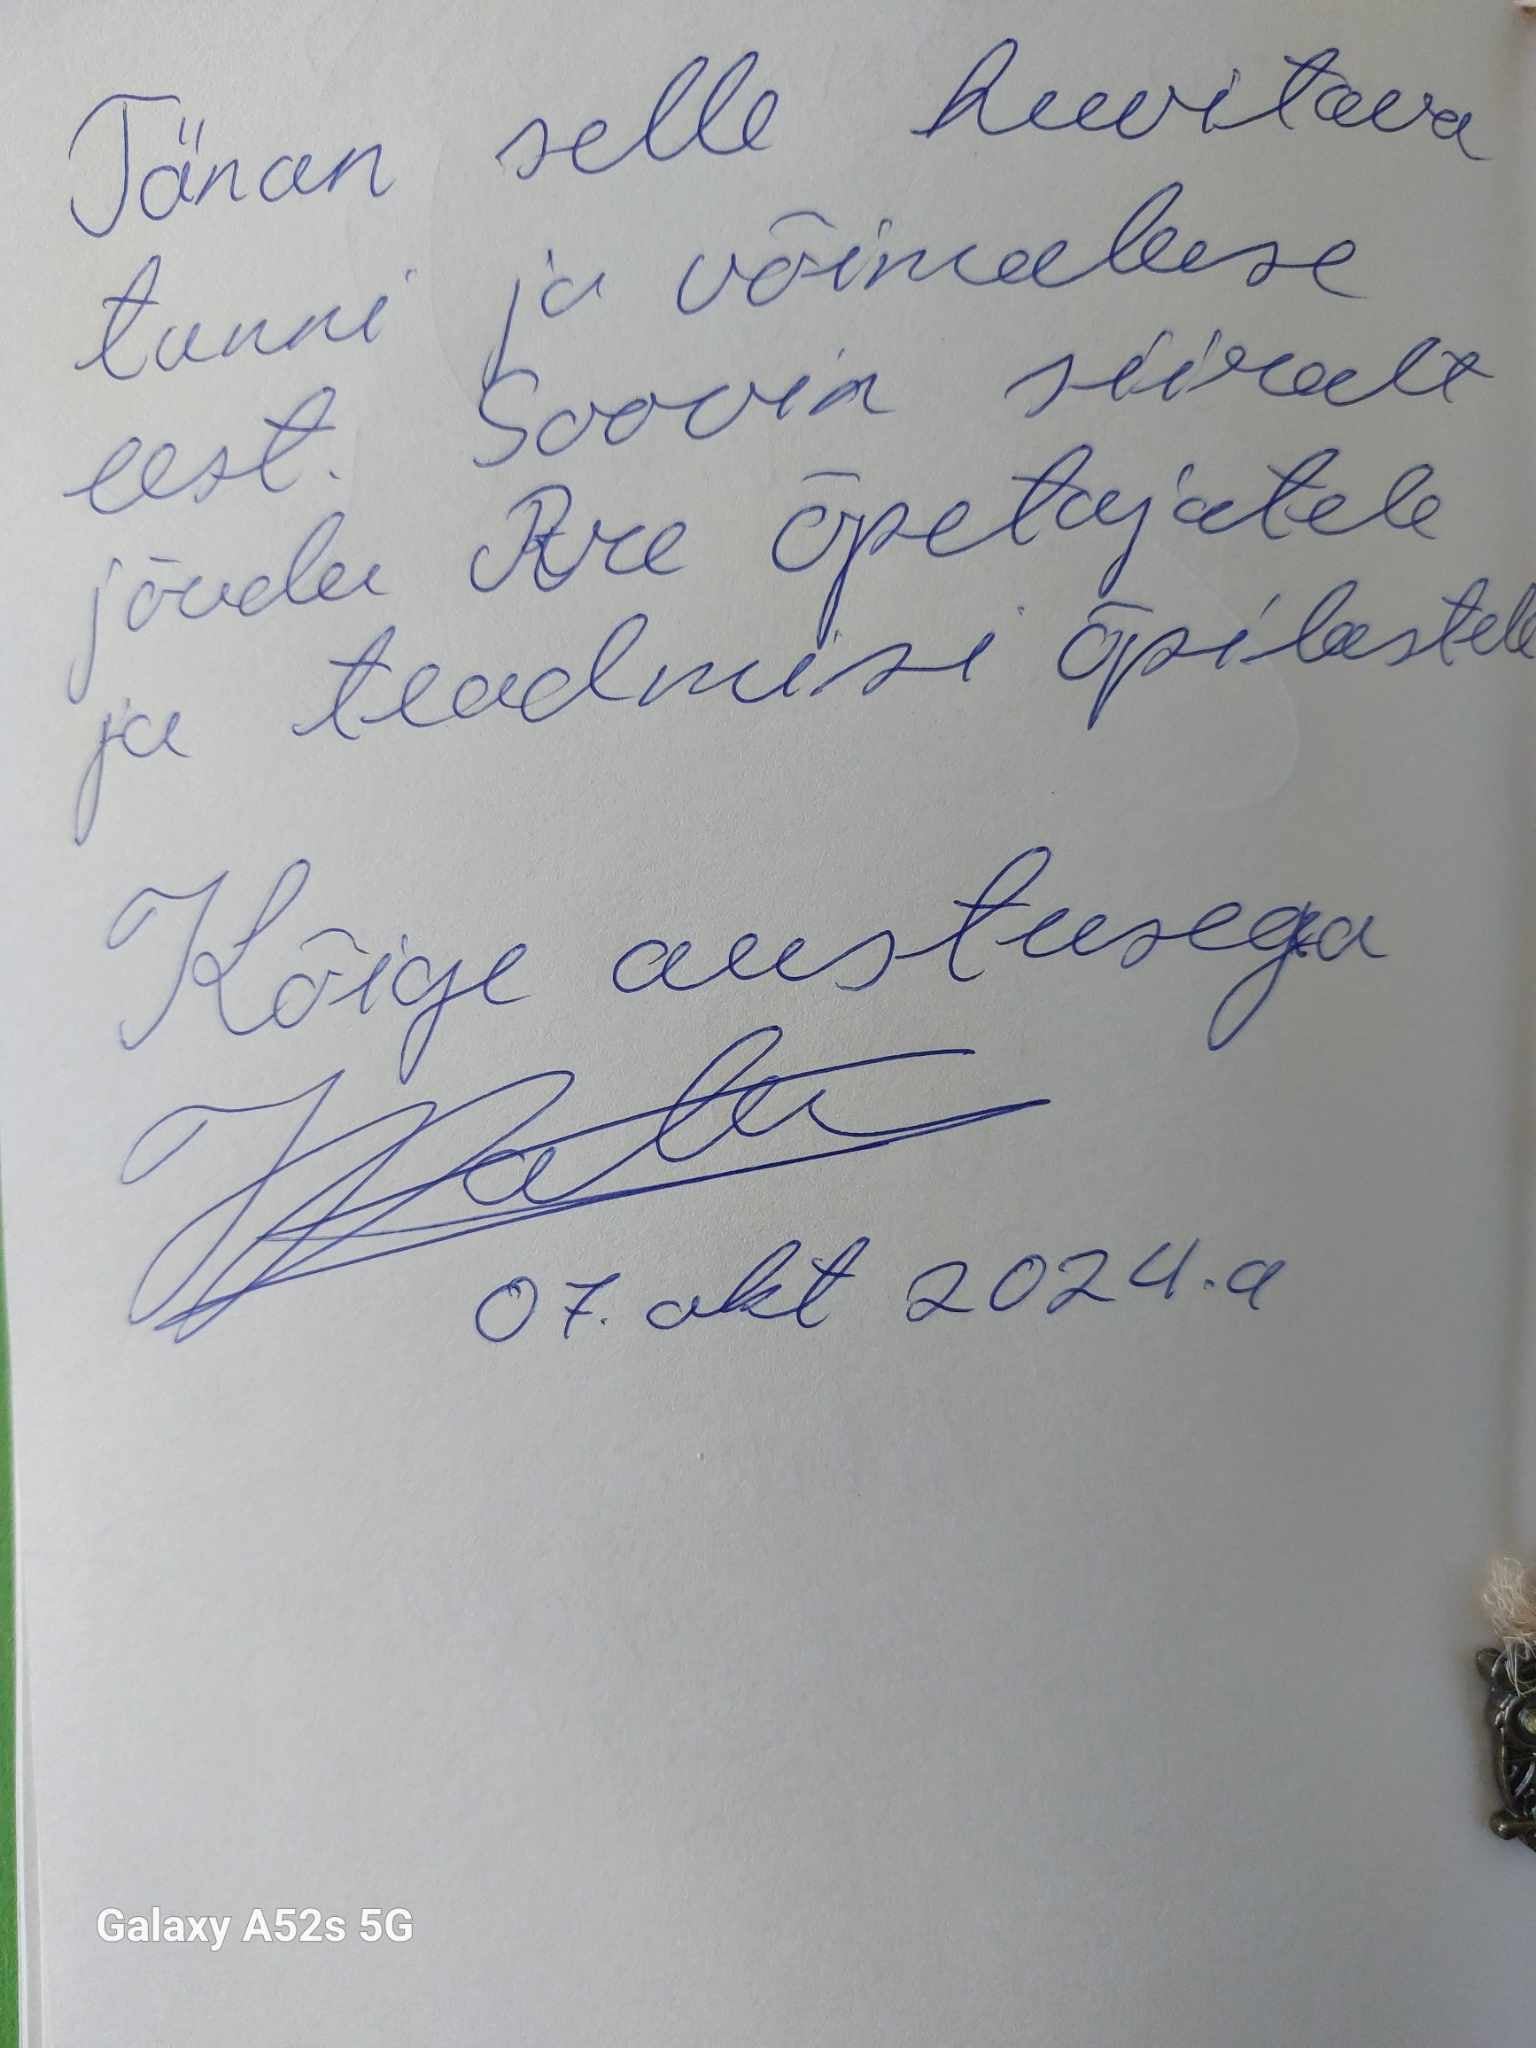 Tänan selle huvitava
tunni ja võimaluse
eest. Soovin siiralt
jõudu Are õpetajatele
ja teadmisi õpilastele
Kõige austusega
07. okt 2024.a
Galaxy A52s 5G